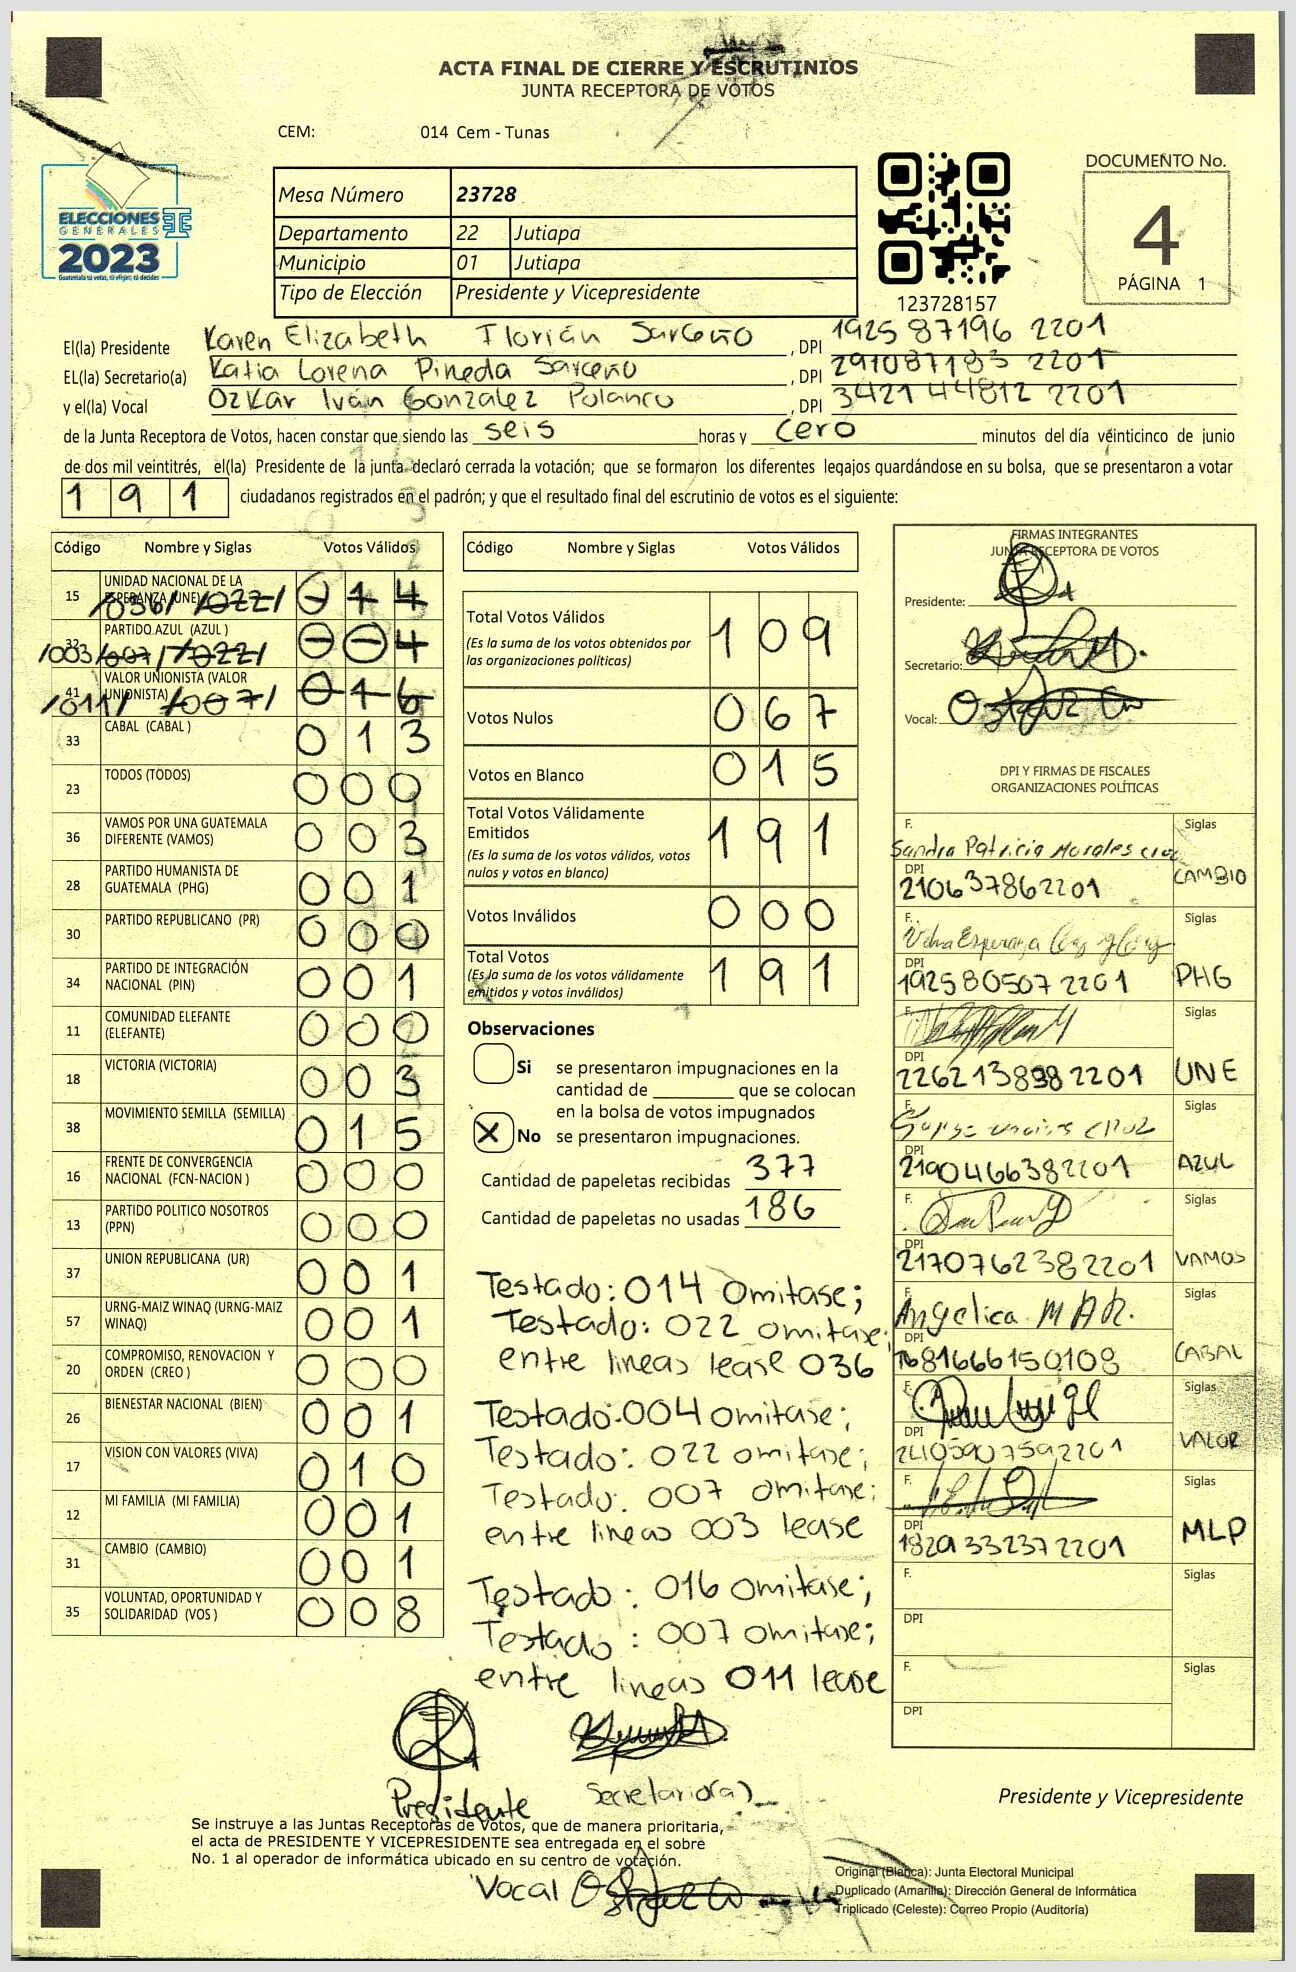 ACTA FINAL DE CIERRE Y ESCRUTINIOS
JUNTA RECEPTORA DE VOTOS
CEM: 014 Cem - Tunas
ELECCIONES
GENERALES
2023
Guatemala tú votas, tú eliges, tú decides
Mesa Número 23728
Departamento 22 Jutiapa
Municipio 01 Jutiapa
Tipo de Elección Presidente y Vicepresidente
123728157
DOCUMENTO No.
4
PÁGINA 1
El(la) Presidente Karen Elizabeth Florián Sarceño, DPI 1925 87196 2201
EL(la) Secretario(a) Katia Lorena Pineda Sarceño, DPI 291087183 2201
y el(la) Vocal Ozkar Iván Gonzalez Polanco, DPI 3421 44812 2201
de la Junta Receptora de Votos, hacen constar que siendo las seis horas y cero minutos del día veinticinco de junio
de dos mil veintitrés, el(la) Presidente de la junta declaró cerrada la votación; que se formaron los diferentes legajos guardándose en su bolsa, que se presentaron a votar
191 ciudadanos registrados en el padrón; y que el resultado final del escrutinio de votos es el siguiente:
Código Nombre y Siglas Votos Válidos
15 UNIDAD NACIONAL DE LA ESPERANZA (UNE) /036/ /022/ 014
32 PARTIDO AZUL (AZUL) /003/ 007/ /022/ 004
41 VALOR UNIONISTA (VALOR UNIONISTA) /011/ /007/ 016
33 CABAL (CABAL) 013
23 TODOS (TODOS) 000
36 VAMOS POR UNA GUATEMALA DIFERENTE (VAMOS) 003
28 PARTIDO HUMANISTA DE GUATEMALA (PHG) 001
30 PARTIDO REPUBLICANO (PR) 000
34 PARTIDO DE INTEGRACIÓN NACIONAL (PIN) 001
11 COMUNIDAD ELEFANTE (ELEFANTE) 000
18 VICTORIA (VICTORIA) 003
38 MOVIMIENTO SEMILLA (SEMILLA) 015
16 FRENTE DE CONVERGENCIA NACIONAL (FCN-NACION) 000
13 PARTIDO POLITICO NOSOTROS (PPN) 000
37 UNION REPUBLICANA (UR) 001
57 URNG-MAIZ WINAQ (URNG-MAIZ WINAQ) 001
20 COMPROMISO, RENOVACION Y ORDEN (CREO) 000
26 BIENESTAR NACIONAL (BIEN) 001
17 VISION CON VALORES (VIVA) 010
12 MI FAMILIA (MI FAMILIA) 001
31 CAMBIO (CAMBIO) 001
35 VOLUNTAD, OPORTUNIDAD Y SOLIDARIDAD (VOS) 008
Código Nombre y Siglas Votos Válidos
Total Votos Válidos 109
(Es la suma de los votos obtenidos por
las organizaciones políticas)
Votos Nulos 067
Votos en Blanco 015
Total Votos Válidamente Emitidos 191
(Es la suma de los votos válidos, votos
nulos y votos en blanco)
Votos Inválidos 000
Total Votos 191
(Es la suma de los votos válidamente
emitidos y votos inválidos)
Observaciones
Si se presentaron impugnaciones en la
cantidad de ________ que se colocan
en la bolsa de votos impugnados
X No se presentaron impugnaciones.
Cantidad de papeletas recibidas 377
Cantidad de papeletas no usadas 186
Testado: 014 Omitase;
Testado: 022 omitase;
entre lineas lease 036
Testado: 004 omitase;
Testado: 022 omitase;
Testado: 007 omitase;
entre lineas 003 lease
Testado: 016 omitase;
Testado: 007 omitase;
entre lineas 011 lease
Presidente
Secretario(a)
Vocal
FIRMAS INTEGRANTES
JUNTA RECEPTORA DE VOTOS
Presidente:
Secretario:
Vocal:
DPI Y FIRMAS DE FISCALES
ORGANIZACIONES POLÍTICAS
F. Sandra Patricia Morales Cruz Siglas
DPI 210637862201 CAMBIO
F. Siglas
DPI 192580507 2201 PHG
F. Siglas
DPI 2262138982201 UNE
F. Siglas
DPI 2190466382201 AZUL
F. Siglas
DPI 2170762382201 VAMOS
F. Angelica Siglas
DPI 1681666150108 CABAL
F. Siglas
DPI 24105907592201 VALOR
F. Siglas
DPI 1829332372201 MLP
F. Siglas
DPI
F. Siglas
DPI
Presidente y Vicepresidente
Se instruye a las Juntas Receptoras de Votos, que de manera prioritaria,
el acta de PRESIDENTE Y VICEPRESIDENTE sea entregada en el sobre
No. 1 al operador de informática ubicado en su centro de votación.
Original (Blanca): Junta Electoral Municipal
Duplicado (Amarilla): Dirección General de Informática
Triplicado (Celeste): Correo Propio (Auditoría)